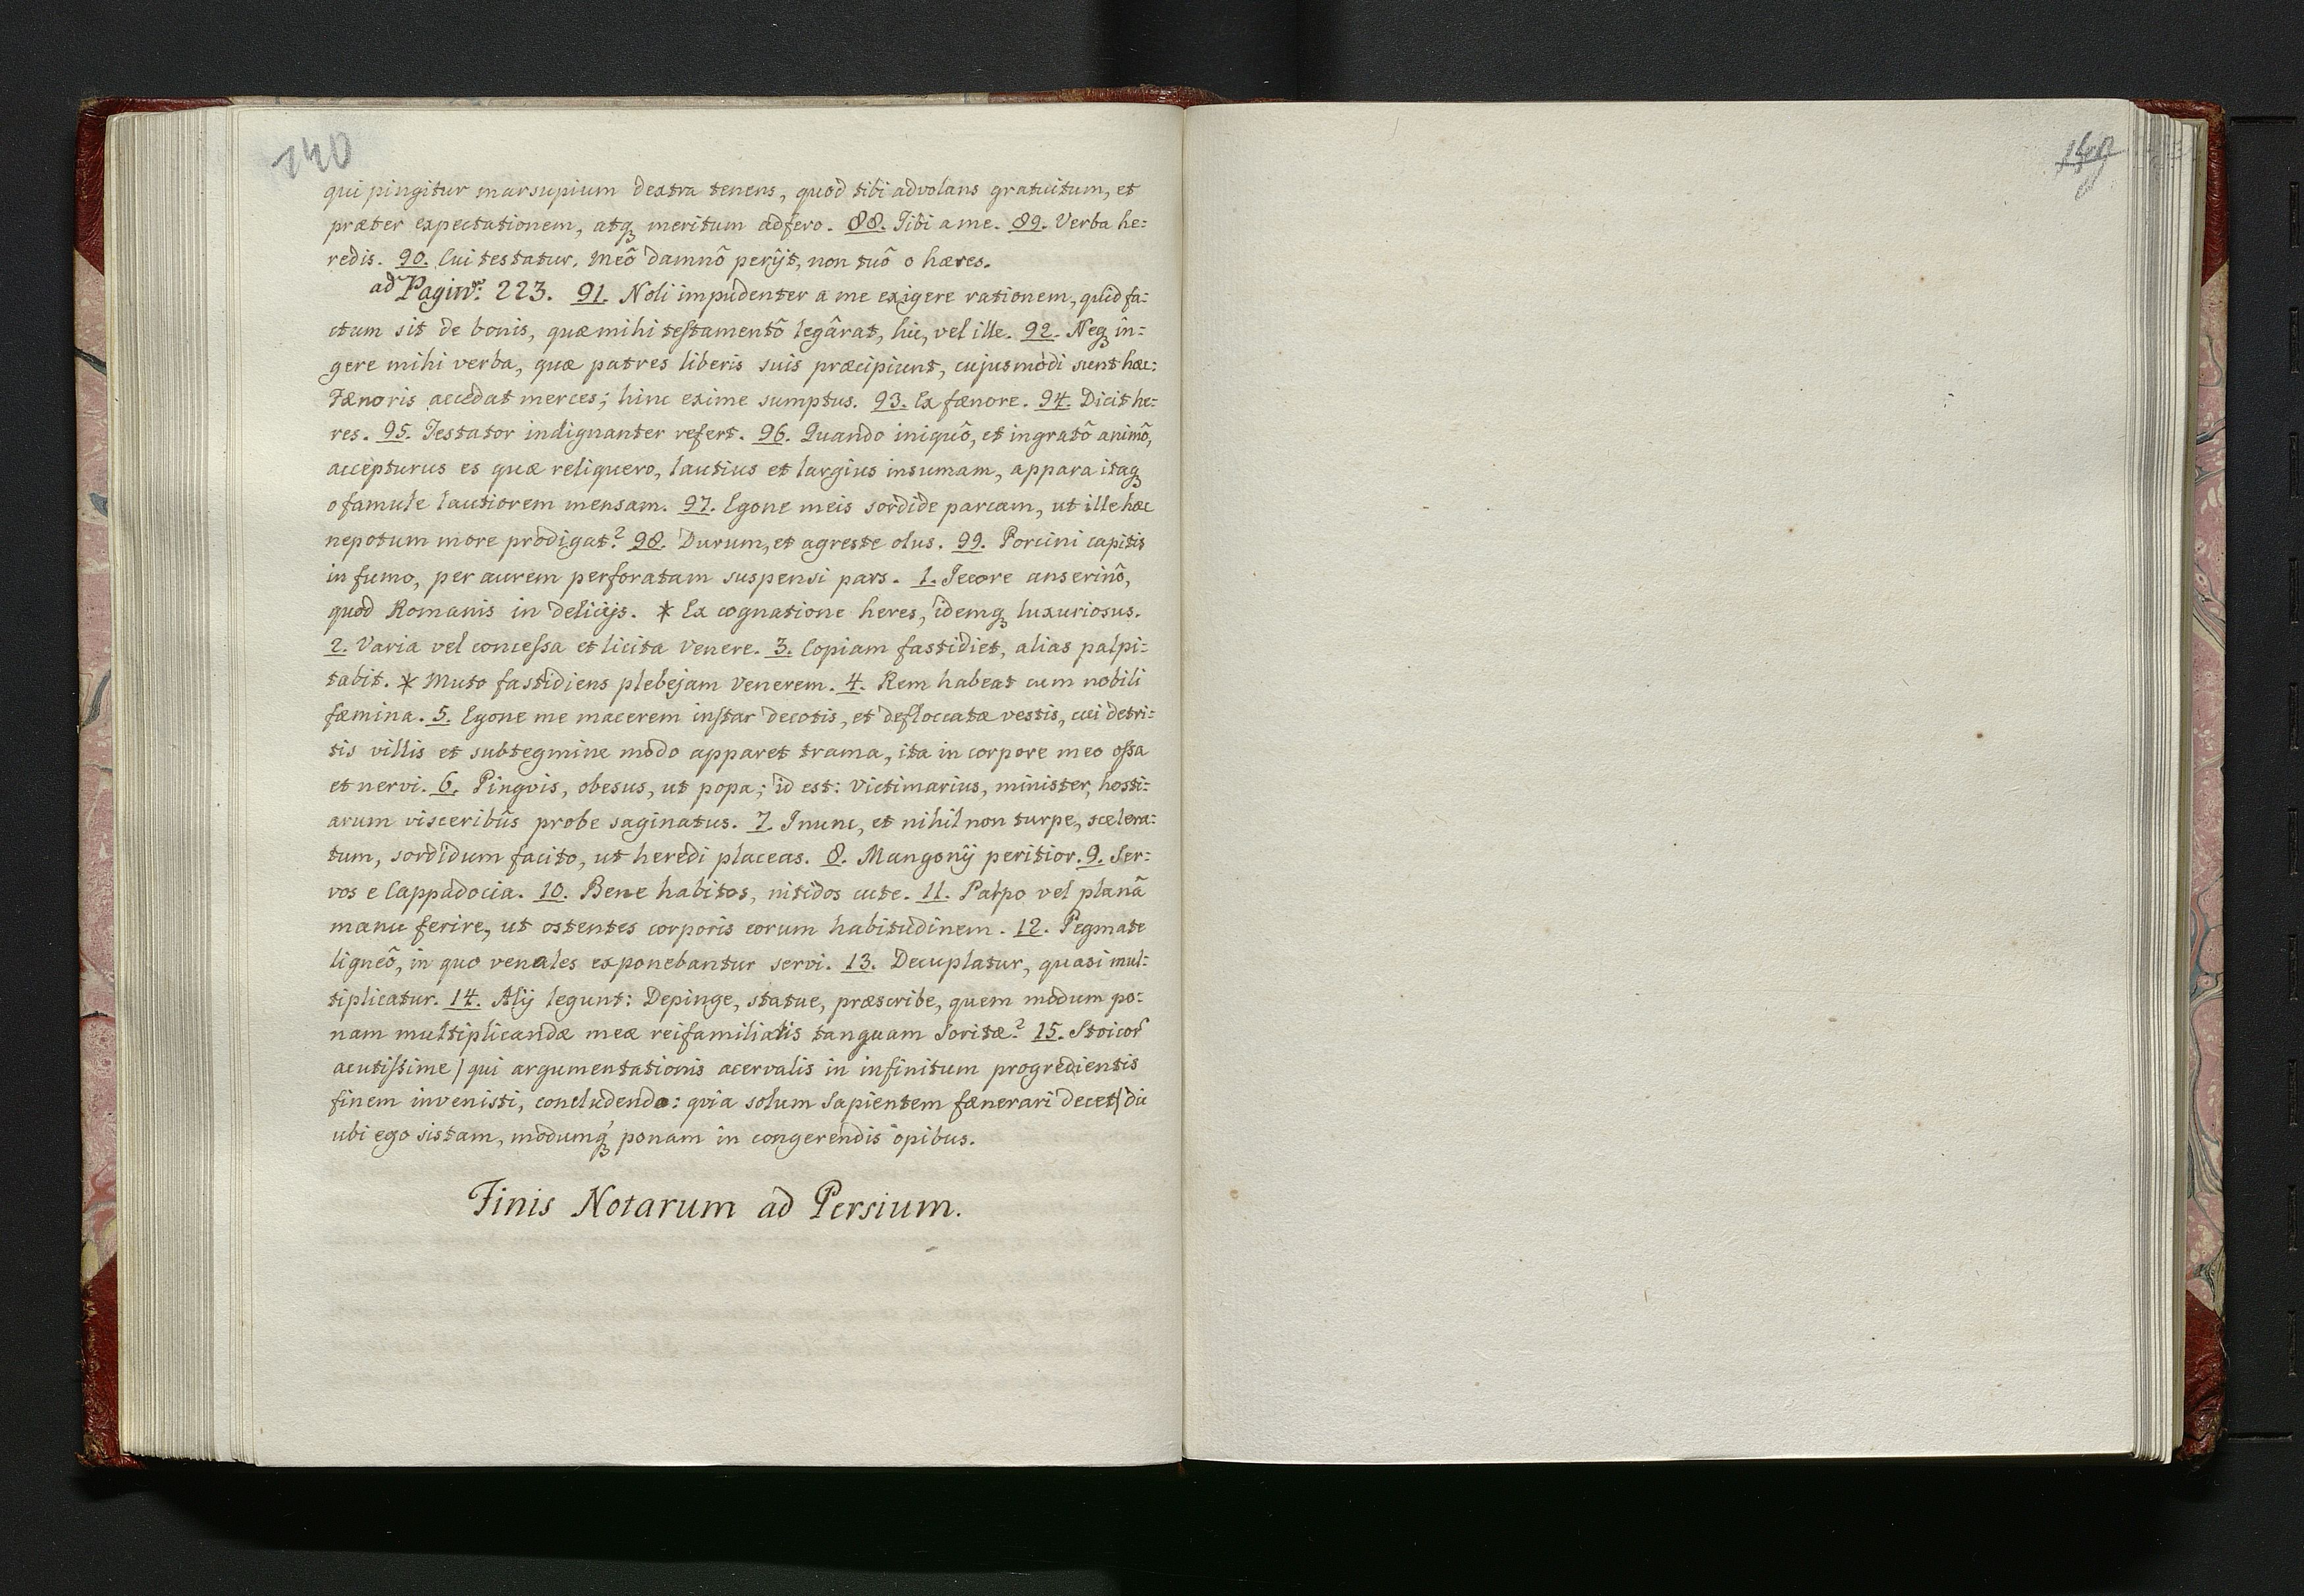 140
qui pingitur marsupium dextra tenens, quod tibi advolans gratuitum, et
præter expectationem, atq; meritum adfero. 88. Tibi a me. 89. Verba he:
redis. 90. Cui testatur. Meô damnô perijt, non tuô o hæres.
ad Pagin: 223. 91. Noli impudenter a me exigere rationem, quid fa:
ctum sit de bonis, quæ mihi testamentô legârat, hic, vel ille. 92. Neq; in:
gere mihi verba, quæ patres liberis suis præcipiunt, cujusmodi sunt hæc:
Fænoris accedat merces; hinc exime sumptus. 93. Ex fænore. 94. Dicit he:
res. 95. Testator indignanter refert. 96. Quando iniquô, et ingratô animô,
accepturus es quæ reliquero, lautius et largius insumam, appara itaq;
o famule lautiorem mensam. 97. Egone meis sordide parcam, ut ille hæc
nepotum more prodigat? 98. Durum, et agreste olus. 99. Porcini capitis
in fumo, per aurem perforatam suspensi pars. 1. Jecore anserinô,
quod Romanis in delicijs. * Ex cognatione heres, idemq; luxuriosus.
2. Varia vel concessa et licita Venere. 3. Copiam fastidiet, alias palpi:
tabit. * Muto fastidiens plebejam Venerem. 4. Rem habeat cum nobili
fæmina. 5. Egone me macerem instar decotis, et defloccatæ vestis, cui detri:
tis villis et subtegmine modo apparet trama, ita in corpore meo ossa
et nervi. 6. Pingvis, obesus, ut popa; id est: Victimarius, minister, hosti:
arum visceribûs probe saginatus. 7. I nunc, et nihil non turpe, scelera:
tum, sordidum facito, ut heredi placeas. 8. Mangonij peritior. 9. Ser:
vos e Cappadocia. 10. Bene habitos, nitidos cute. 11. Palpo vel planâ
manu ferire, ut ostentes corporis eorum habitudinem. 12. Pegmate
ligneô, in quo venales exponebantur servi. 13. Decuplatur, quasi mul:
tiplicatur. 14. Alij legunt: Depinge, statue, præscribe, quem modum po:
nam multiplicandæ meæ reifamilialis tanquam Soritæ? 15. Stoicor
acutissime) qui argumentationis acervalis in infinitum progredientis
finem invenisti, concludendo: qvia solum Sapientem fænerari decet) dic
ubi ego sistam, modumq; ponam in congerendis opibus.
Finis Notarum ad Persium.